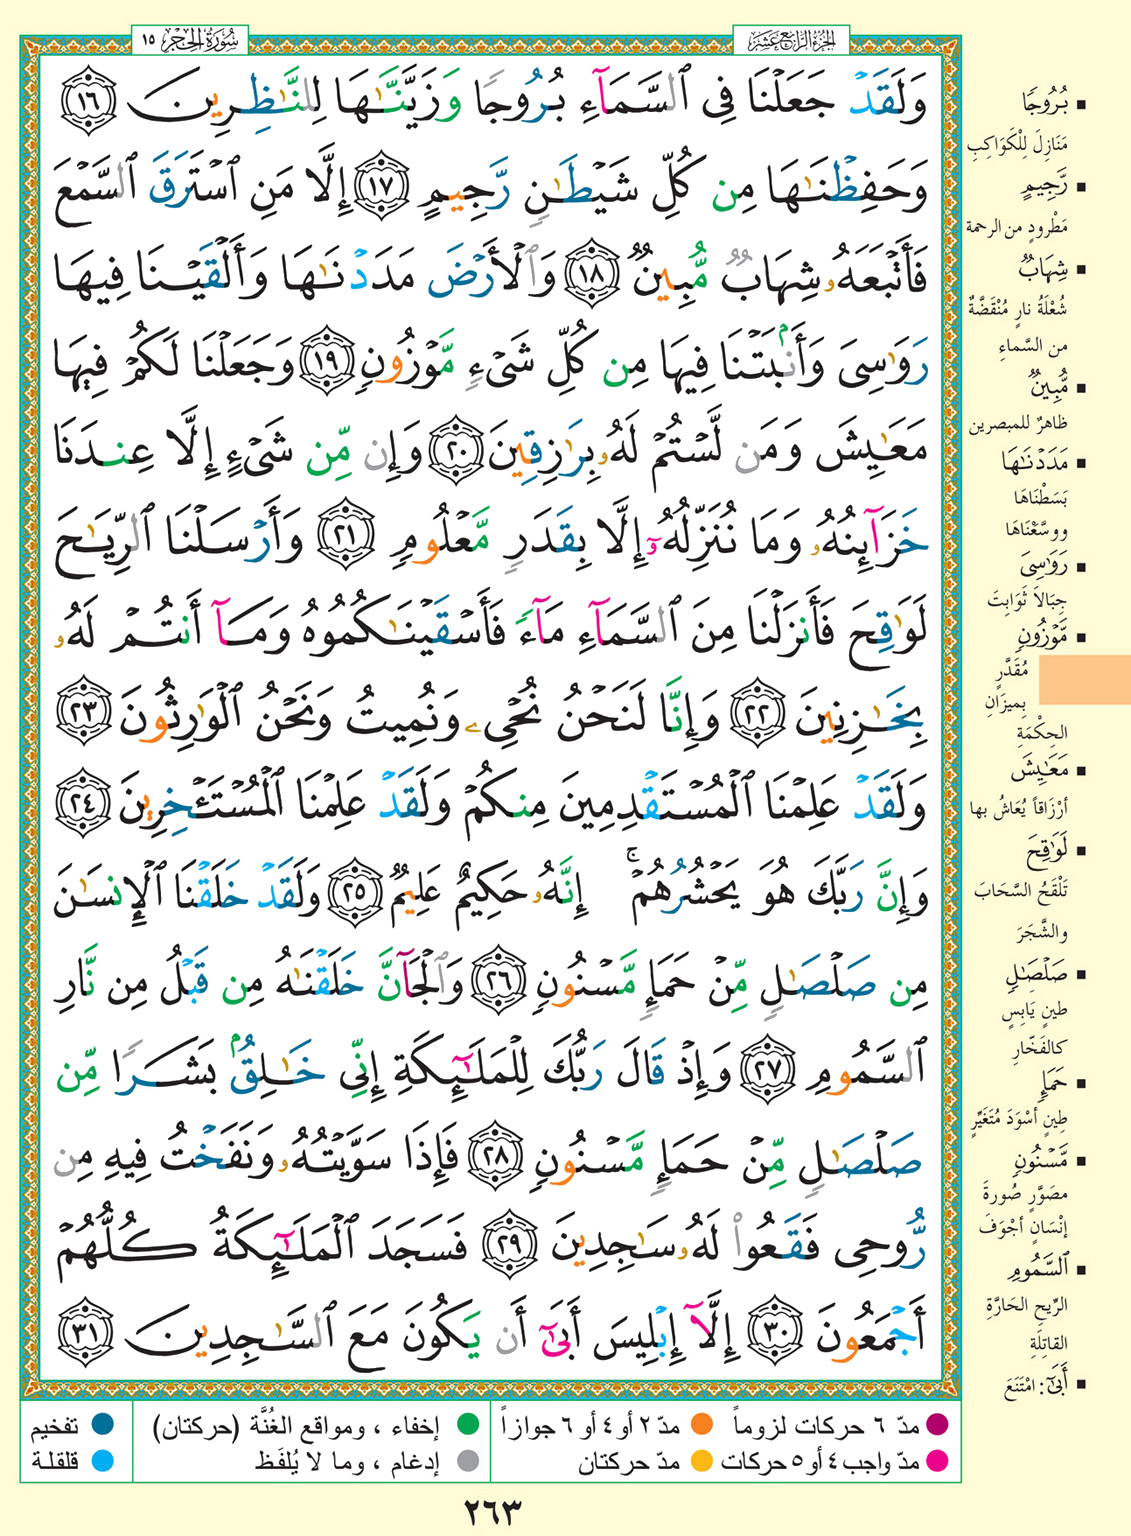 الجزء الرابع عشر
سورة الحجر ١٥
وَلَقَدْ جَعَلْنَا فِى ٱلسَّمَآءِ بُرُوجًا وَزَيَّنَّـٰهَا لِلنَّـٰظِرِينَ ١٦
وَحَفِظْنَـٰهَا مِن كُلِّ شَيْطَـٰنٍ رَّجِيمٍ ١٧ إِلَّا مَنِ ٱسْتَرَقَ ٱلسَّمْعَ
فَأَتْبَعَهُۥ شِهَابٌ مُّبِينٌ ١٨ وَٱلْأَرْضَ مَدَدْنَـٰهَا وَأَلْقَيْنَا فِيهَا
رَوَٰسِىَ وَأَنۢبَتْنَا فِيهَا مِن كُلِّ شَىْءٍ مَّوْزُونٍ ١٩ وَجَعَلْنَا لَكُمْ فِيهَا
مَعَـٰيِشَ وَمَن لَّسْتُمْ لَهُۥ بِرَٰزِقِينَ ٢٠ وَإِن مِّن شَىْءٍ إِلَّا عِندَنَا
خَزَآئِنُهُۥ وَمَا نُنَزِّلُهُۥٓ إِلَّا بِقَدَرٍ مَّعْلُومٍ ٢١ وَأَرْسَلْنَا ٱلرِّيَـٰحَ
لَوَٰقِحَ فَأَنزَلْنَا مِنَ ٱلسَّمَآءِ مَآءً فَأَسْقَيْنَـٰكُمُوهُ وَمَآ أَنتُمْ لَهُۥ
بِخَـٰزِنِينَ ٢٢ وَإِنَّا لَنَحْنُ نُحْىِۦ وَنُمِيتُ وَنَحْنُ ٱلْوَٰرِثُونَ ٢٣
وَلَقَدْ عَلِمْنَا ٱلْمُسْتَقْدِمِينَ مِنكُمْ وَلَقَدْ عَلِمْنَا ٱلْمُسْتَـْٔخِرِينَ ٢٤
وَإِنَّ رَبَّكَ هُوَ يَحْشُرُهُمْ ۚ إِنَّهُۥ حَكِيمٌ عَلِيمٌ ٢٥ وَلَقَدْ خَلَقْنَا ٱلْإِنسَـٰنَ
مِن صَلْصَـٰلٍ مِّنْ حَمَإٍ مَّسْنُونٍ ٢٦ وَٱلْجَآنَّ خَلَقْنَـٰهُ مِن قَبْلُ مِن نَّارِ
ٱلسَّمُومِ ٢٧ وَإِذْ قَالَ رَبُّكَ لِلْمَلَـٰٓئِكَةِ إِنِّى خَـٰلِقٌۢ بَشَرًا مِّن
صَلْصَـٰلٍ مِّنْ حَمَإٍ مَّسْنُونٍ ٢٨ فَإِذَا سَوَّيْتُهُۥ وَنَفَخْتُ فِيهِ مِن
رُّوحِى فَقَعُوا۟ لَهُۥ سَـٰجِدِينَ ٢٩ فَسَجَدَ ٱلْمَلَـٰٓئِكَةُ كُلُّهُمْ
أَجْمَعُونَ ٣٠ إِلَّآ إِبْلِيسَ أَبَىٰٓ أَن يَكُونَ مَعَ ٱلسَّـٰجِدِينَ ٣١
▪ بُرُوجًا
مَنَازِلَ لِلْكَوَاكِبِ
▪ رَّجِيمٍ
مَطْرودٍ من الرحمة
▪ شِهَابٌ
شُعْلَةُ نارٍ مُنْقَضَّةٌ
من السَّماءِ
▪ مُّبِينٌ
ظاهرٌ للمبصرين
▪ مَدَدْنَـٰهَا
بَسَطْنَاهَا
ووسَّعْنَاهَا
▪ رَوَٰسِىَ
جِبَالاً ثَوَابِتَ
▪ مَّوْزُونٍ
مُقَدَّرٍ
بِميزَانِ
الحِكْمَةِ
▪ مَعَـٰيِشَ
أرْزَاقاً يُعَاشُ بها
▪ لَوَٰقِحَ
تَلْقَحُ السَّحَابَ
والشَّجَرَ
▪ صَلْصَـٰلٍ
طينٍ يَابِسٍ
كالفَخَّارِ
▪ حَمَإٍ
طِينٍ أسْوَدَ مُتَغَيِّرٍ
▪ مَّسْنُونٍ
مصَوَّرٍ صُورةَ
إنْسَانٍ أجْوَفَ
▪ ٱلسَّمُومِ
الرِّيحِ الحَارَّةِ
القاتِلَةِ
▪ أَبَىٰٓ: امْتَنَعَ
مدّ ٦ حركات لزوماً
مدّ ٢ أو ٤ أو ٦ جوازاً
إخفاء ، ومواقع الغُنَّة (حركتان)
تفخيم
مدّ واجب ٤ أو ٥ حركات
مدّ حركتان
إدغام ، وما لا يُلفَظ
قلقلة
٢٦٣